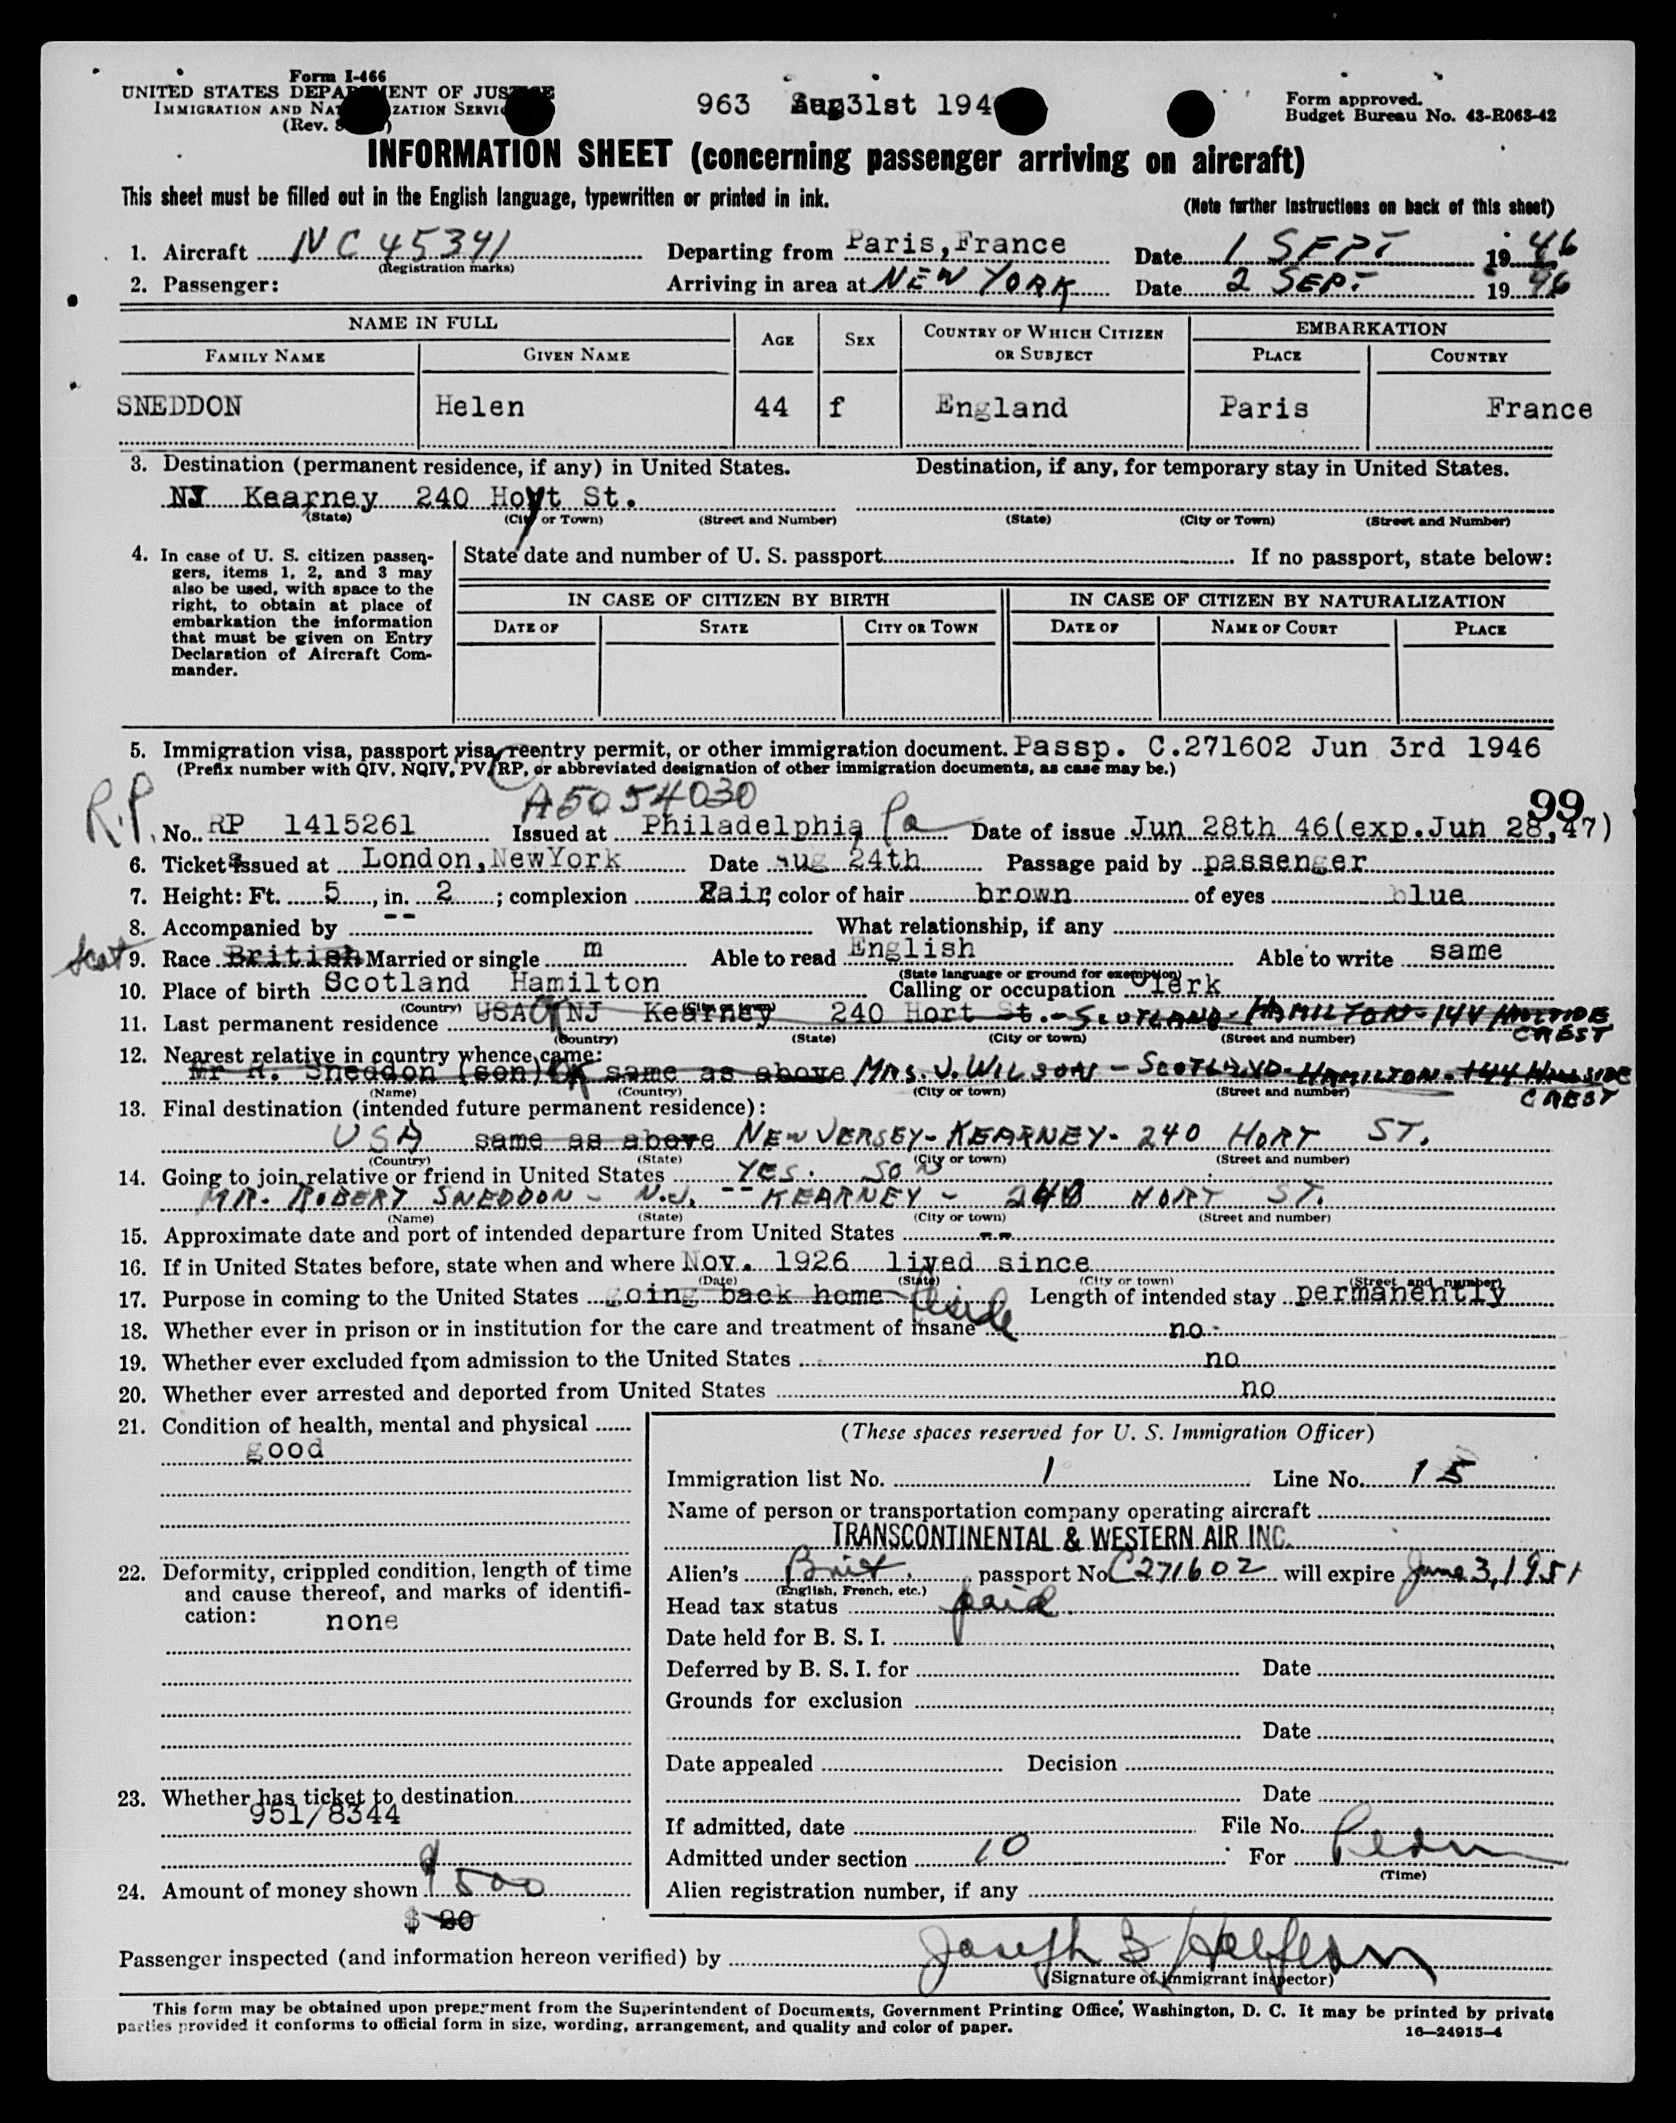 Form I-466
UNITED STATES DEPARTMENT OF JUSTICE
IMMIGRATION AND NATURALIZATION SERVICE
(Rev.
963 Aug 31st 194
Form approved.
Budget Bureau No. 43-R063-42
INFORMATION SHEET (concerning passenger arriving on aircraft)
This sheet must be filled out in the English language, typewritten or printed in ink.
(Note further instructions on back of this sheet)
1. Aircraft NC 45341 Departing from Paris, France Date 1 SEPT 1946
(Registration marks)
2. Passenger: Arriving in area at NEW YORK Date 2 SEPT 1946
NAME IN FULL AGE SEX COUNTRY OF WHICH CITIZEN OR SUBJECT EMBARKATION
FAMILY NAME GIVEN NAME PLACE COUNTRY
SNEDDON Helen 44 f England Paris France
3. Destination (permanent residence, if any) in United States. Destination, if any, for temporary stay in United States.
NJ Kearney 240 Hoyt St.
(State) (City or Town) (Street and Number) (State) (City or Town) (Street and Number)
4. In case of U. S. citizen passen-
gers, items 1, 2, and 3 may
also be used, with space to the
right, to obtain at place of
embarkation the information
that must be given on Entry
Declaration of Aircraft Com-
mander.
State date and number of U. S. passport If no passport, state below:
IN CASE OF CITIZEN BY BIRTH IN CASE OF CITIZEN BY NATURALIZATION
DATE OF STATE CITY OR TOWN DATE OF NAME OF COURT PLACE
5. Immigration visa, passport visa, reentry permit, or other immigration document. Passp. C.271602 Jun 3rd 1946
(Prefix number with QIV, NQIV, PV, RP, or abbreviated designation of other immigration documents, as case may be.)
R.P. A5054030 99
No. RP 1415261 Issued at Philadelphia Pa Date of issue Jun 28th 46(exp.Jun 28,47)
6. Tickets issued at London, NewYork Date Aug 24th Passage paid by passenger
7. Height: Ft. 5, in. 2; complexion Fair; color of hair brown of eyes blue
8. Accompanied by -- What relationship, if any
Scot 9. Race British Married or single m Able to read English Able to write same
(State language or ground for exemption)
10. Place of birth Scotland Hamilton Calling or occupation Clerk
(Country) (City or town)
11. Last permanent residence USA NJ Kearney 240 Hort St. - SCOTLAND - HAMILTON - 144 HILLSIDE CREST
(Country) (State) (City or town) (Street and number)
12. Nearest relative in country whence came:
Mr R. Sneddon (son) same as above MRS. J. WILSON - SCOTLAND - HAMILTON - 144 HILLSIDE CREST
(Name) (Country) (City or town) (Street and number)
13. Final destination (intended future permanent residence):
USA same as above NEW JERSEY - KEARNEY - 240 HORT ST.
(Country) (State) (City or town) (Street and number)
14. Going to join relative or friend in United States YES. SON
MR. ROBERT SNEDDON - N.J. -- KEARNEY - 240 HORT ST.
(Name) (State) (City or town) (Street and number)
15. Approximate date and port of intended departure from United States --
16. If in United States before, state when and where Nov. 1926 lived since
(Date) (State) (City or town) (Street and number)
17. Purpose in coming to the United States going back home Reside Length of intended stay permanently
18. Whether ever in prison or in institution for the care and treatment of insane no
19. Whether ever excluded from admission to the United States no
20. Whether ever arrested and deported from United States no
21. Condition of health, mental and physical
good
22. Deformity, crippled condition, length of time
and cause thereof, and marks of identifi-
cation: none
23. Whether has ticket to destination
951/8344
24. Amount of money shown $500
$ 20
(These spaces reserved for U. S. Immigration Officer)
Immigration list No. 1 Line No. 15
Name of person or transportation company operating aircraft
TRANSCONTINENTAL & WESTERN AIR INC.
Alien's Brit. passport No. C271602 will expire June 3, 1951
(English, French, etc.)
Head tax status paid
Date held for B. S. I.
Deferred by B. S. I. for Date
Grounds for exclusion
Date
Date appealed Decision
Date
If admitted, date File No.
Admitted under section 10 For Perm
(Time)
Alien registration number, if any
Passenger inspected (and information hereon verified) by Joseph
(Signature of immigrant inspector)
This form may be obtained upon prepayment from the Superintendent of Documents, Government Printing Office, Washington, D. C. It may be printed by private
parties provided it conforms to official form in size, wording, arrangement, and quality and color of paper.
16—24915-4